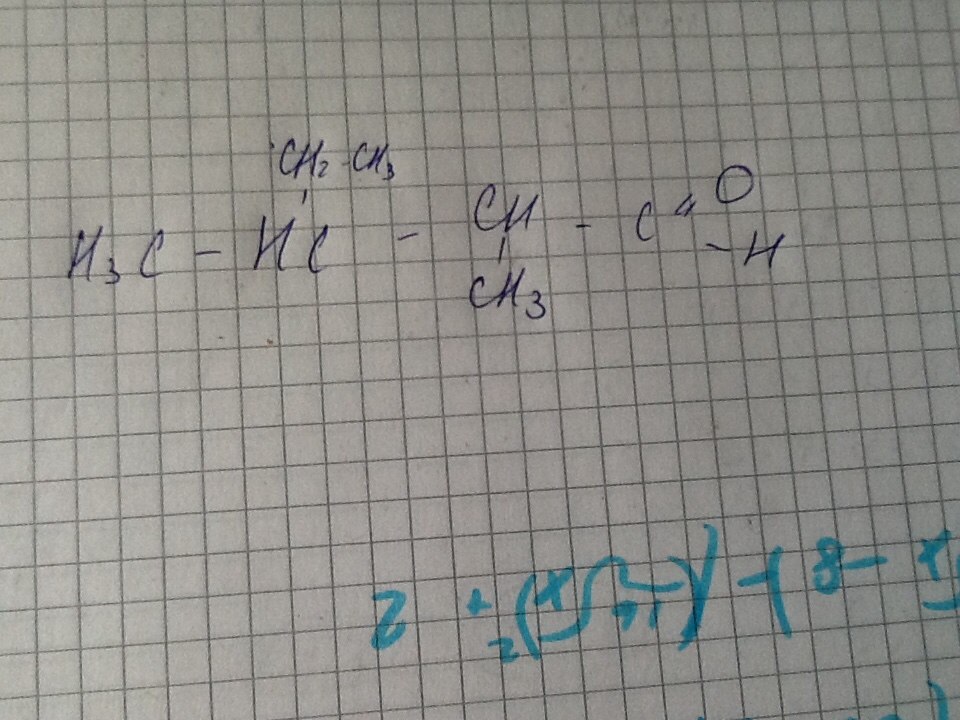 CH2 CH3
H3C - HC - CH - C " O
CH3 - H
2 + 8 -